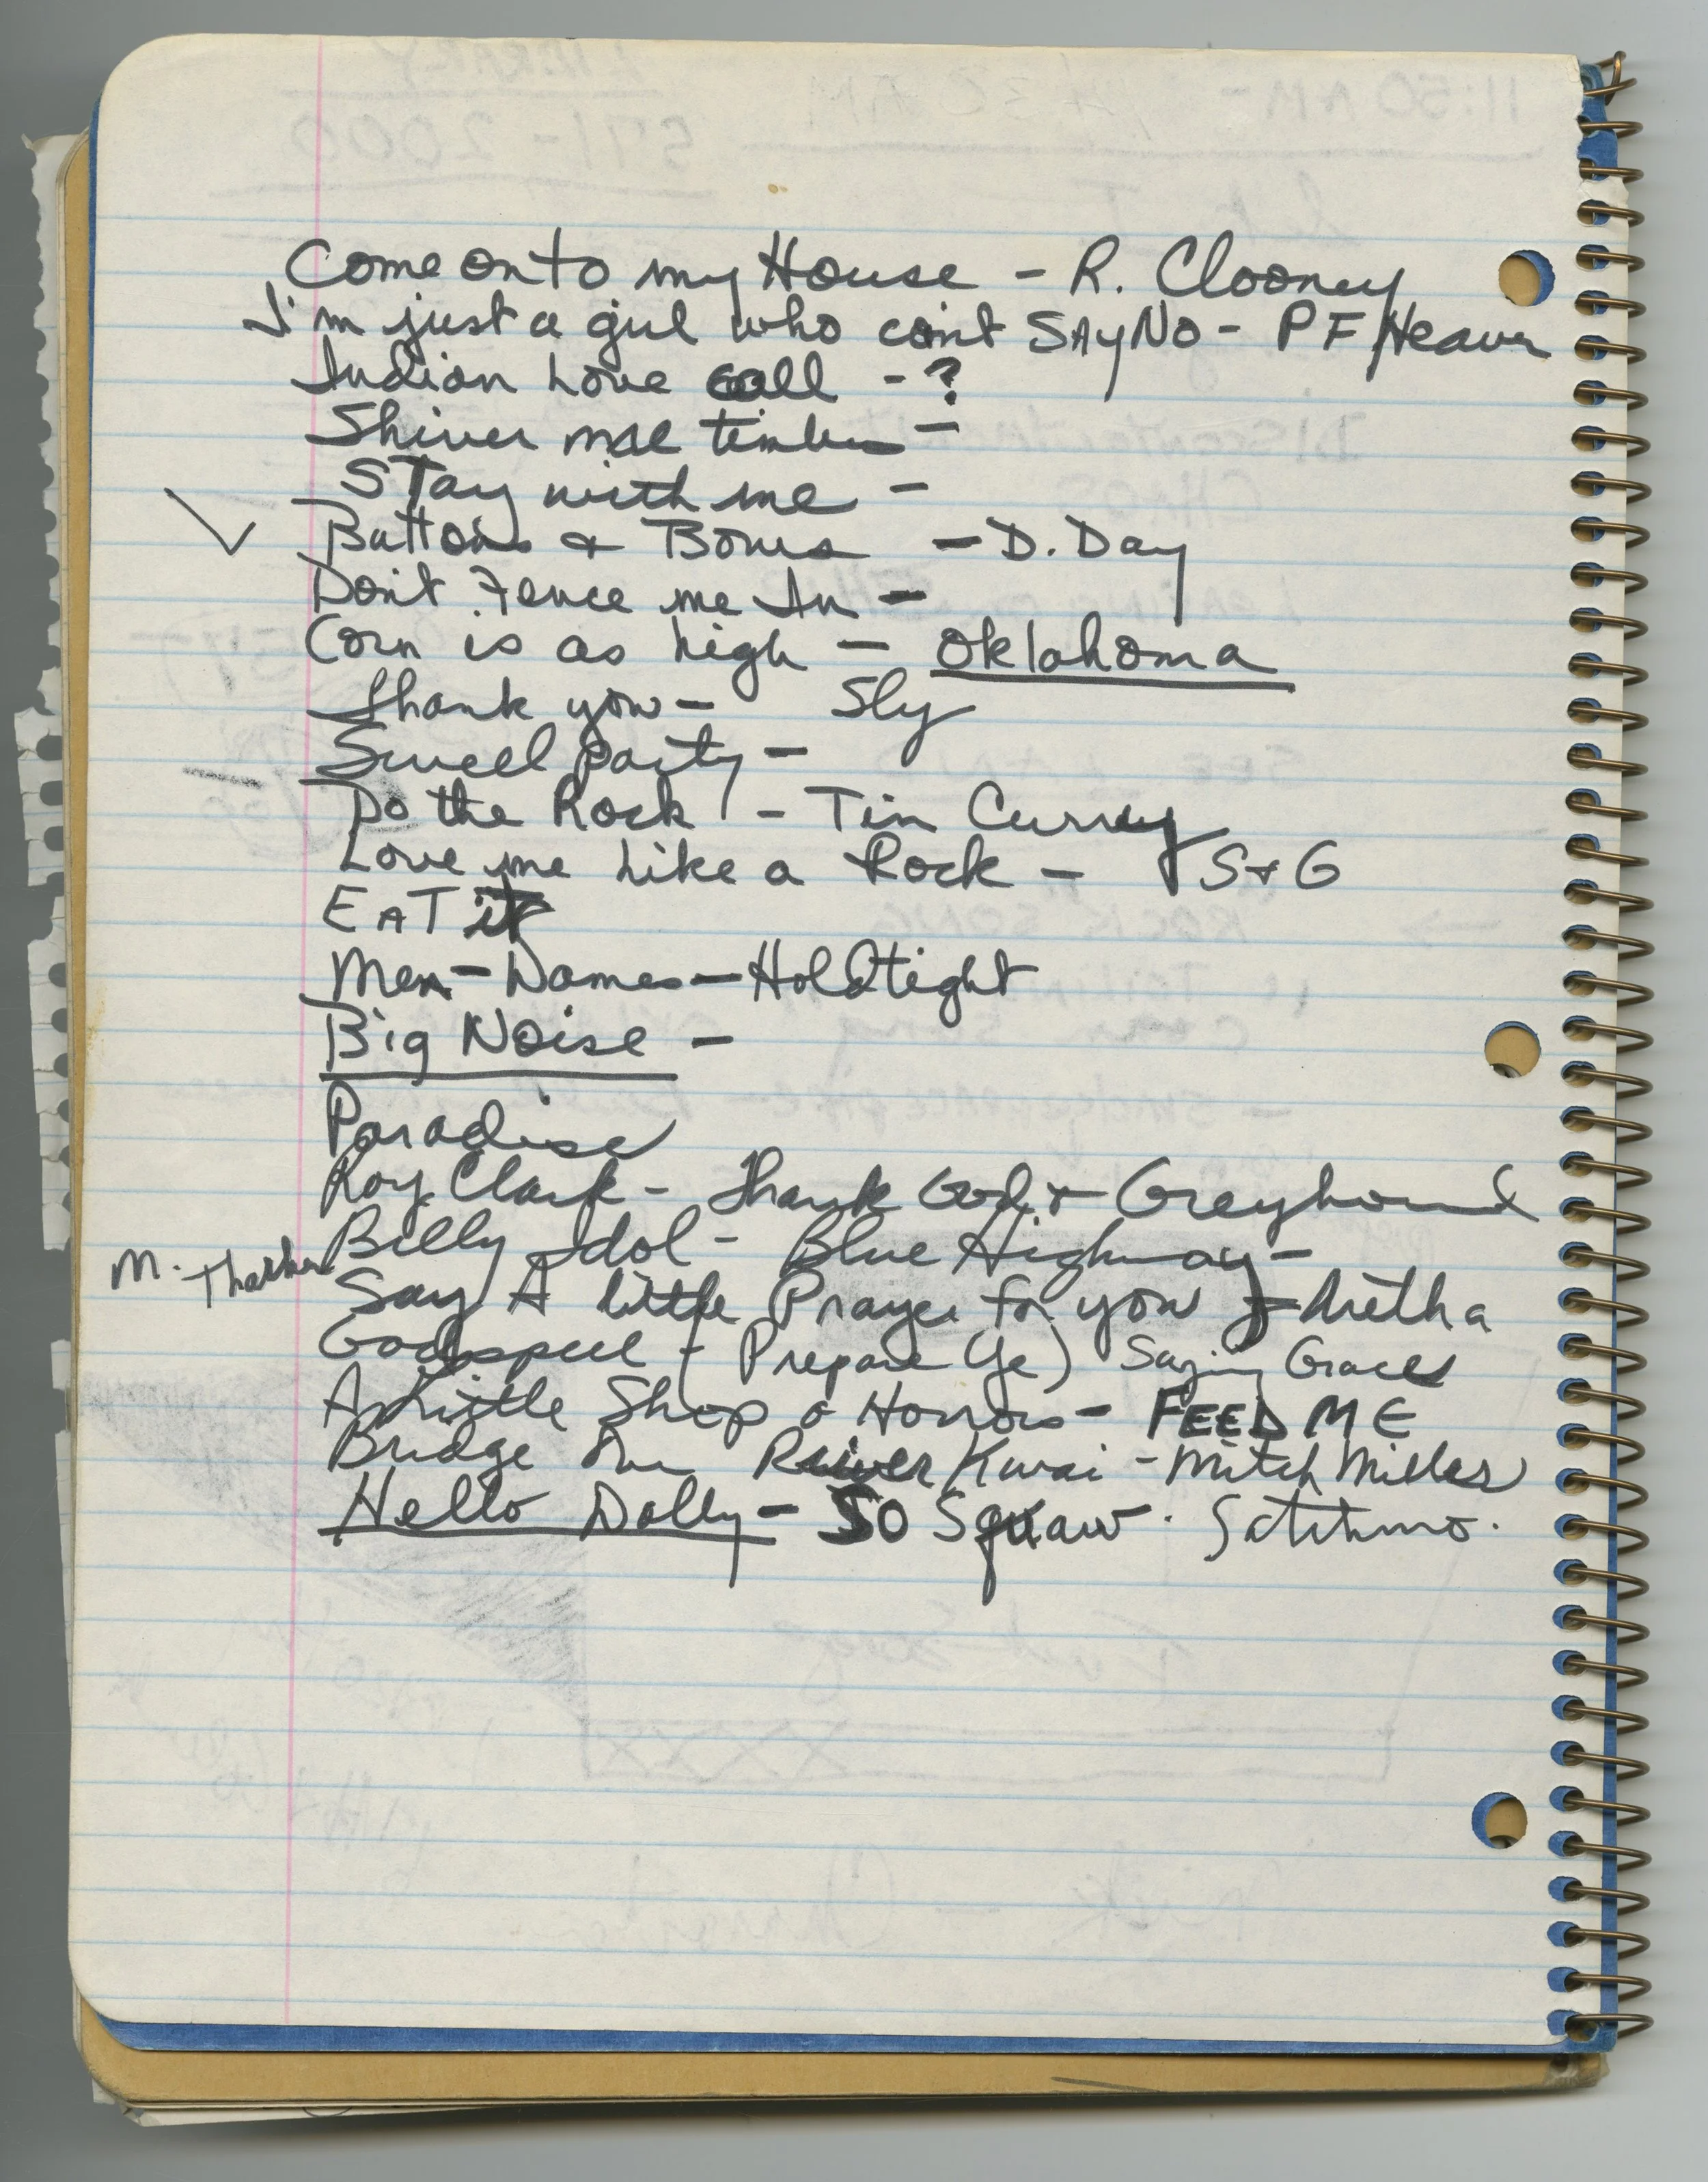 Come on to my House - R. Clooney
I'm just a girl who can't SAY NO - PF Heaven
Indian Love Call - ?
Shiver mae timbers -
Stay with me -
Buttons & Bows - D. Day
Don't Fence me In -
Corn is as high - Oklahoma
Thank you - Sly
Swell party -
Do the Rock - Tim Curry
Love me Like a Rock - S & G
EAT it
Men - Dames - Hold tight
Big Noise -
Paradise
Roy Clark - Thank God & Greyhound
Billy Idol - Blue Highway -
M.
Say A little Prayer for you - Aretha
Godspell - (Prepare Ye) Saying Graces
A Little Shop o Horrors - FEED ME
Bridge Over River Kwai - Mitch Miller
Hello Dolly - SO Squaw. Satchmo.